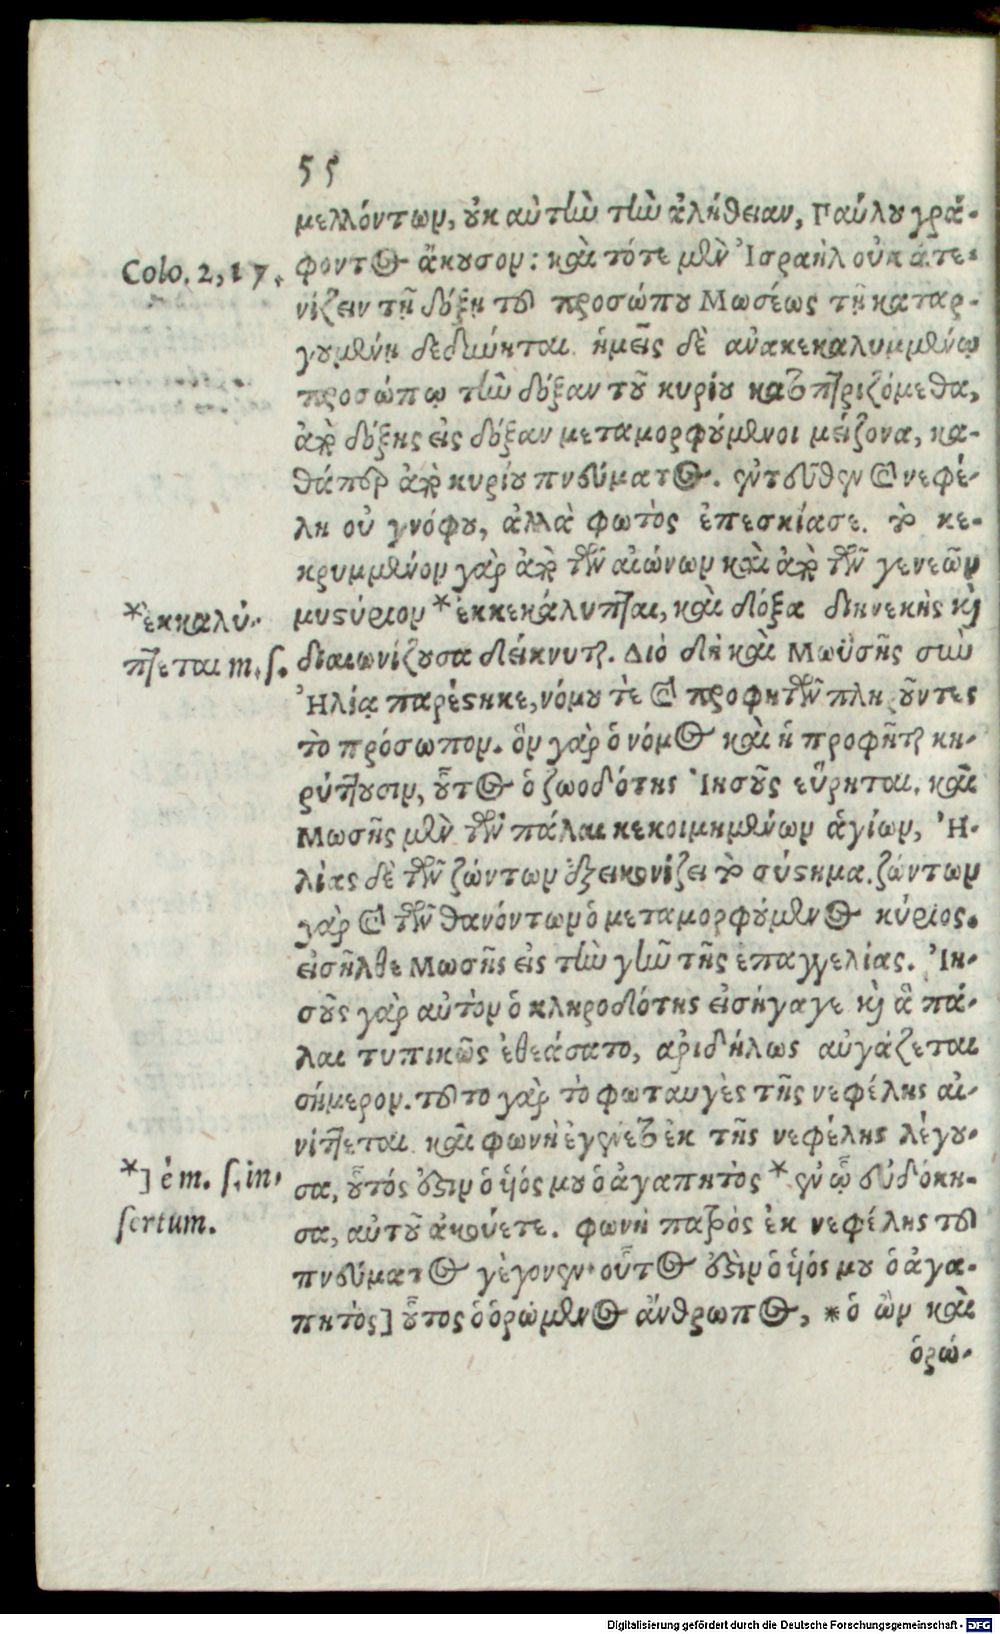 55
μελλόντων, οὐκ αὐτὴν τὴν ἀλήθειαν, Παύλου γρά-
Colo. 2, 17. φοντος ἄκουσον: καὶ τότε μὲν Ἰσραὴλ οὐκ ἀτε-
νίζειν τῇ δόξῃ τοῦ προσώπου Μωσέως τῇ καταρ-
γουμένῃ δεδύνηται. ἡμεῖς δὲ ἀνακεκαλυμμένῳ
προσώπῳ τὴν δόξαν τοῦ κυρίου κατοπτριζόμεθα,
ἀπὸ δόξης εἰς δόξαν μεταμορφούμενοι μείζονα, κα-
θάπερ ἀπὸ κυρίου πνεύματος. ἐντεῦθεν καὶ νεφέ-
λη οὐ γνόφου, ἀλλὰ φωτὸς ἐπεσκίασε. τὸ κε-
κρυμμένον γὰρ ἀπὸ τῶν αἰώνων καὶ ἀπὸ τῶν γενεῶν
*ἐκκαλύ- μυστήριον * ἐκκεκάλυπται, καὶ δόξα διηνεκὴς καὶ
πτεται m. s. διαιωνίζουσα δείκνυται. Διὸ δὴ καὶ Μωϋσῆς σὺν
Ἠλίᾳ παρέστηκε, νόμου τὲ καὶ προφητῶν πληροῦντες
τὸ πρόσωπον. ὃν γὰρ ὁ νόμος καὶ ἡ προφῆται κη-
ρύττουσιν, οὗτος ὁ ζωοδότης Ἰησοῦς εὕρηται. καὶ
Μωσῆς μὲν τῶν πάλαι κεκοιμημένων ἁγίων, Ἠ-
λίας δὲ τῶν ζώντων ἐξεικονίζει τὸ σύστημα. ζώντων
γὰρ καὶ τῶν θανόντων ὁ μεταμορφούμενος κύριος.
εἰσῆλθε Μωσῆς εἰς τὴν γῆν τῆς ἐπαγγελίας. Ἰη-
σοῦς γὰρ αὐτὸν ὁ κληροδότης εἰσήγαγε καὶ ἃ πά-
λαι τυπικῶς ἐθεάσατο, ἀριδήλως αὐγάζεται
σήμερον. τοῦτο γὰρ τὸ φωταυγὲς τῆς νεφέλης αἰ-
νίττεται. καὶ φωνὴ ἐγένετο ἐκ τῆς νεφέλης λέγου-
*] è m. s. in- σα, οὗτός ἐστιν ὁ υἱός μου ὁ ἀγαπητὸς * ἐν ᾧ εὐδόκη-
sertum. σα, αὐτοῦ ἀκούετε. φωνὴ πατρὸς ἐκ νεφέλης τοῦ
πνεύματος γέγονεν· οὗτος ἐστὶν ὁ υἱός μου ὁ ἀγα-
πητὸς] οὗτος ὁ ὁρώμενος ἄνθρωπος, * ὁ ὢν καὶ
ὁρώ-
Digitalisierung gefördert durch die Deutsche Forschungsgemeinschaft - DFG